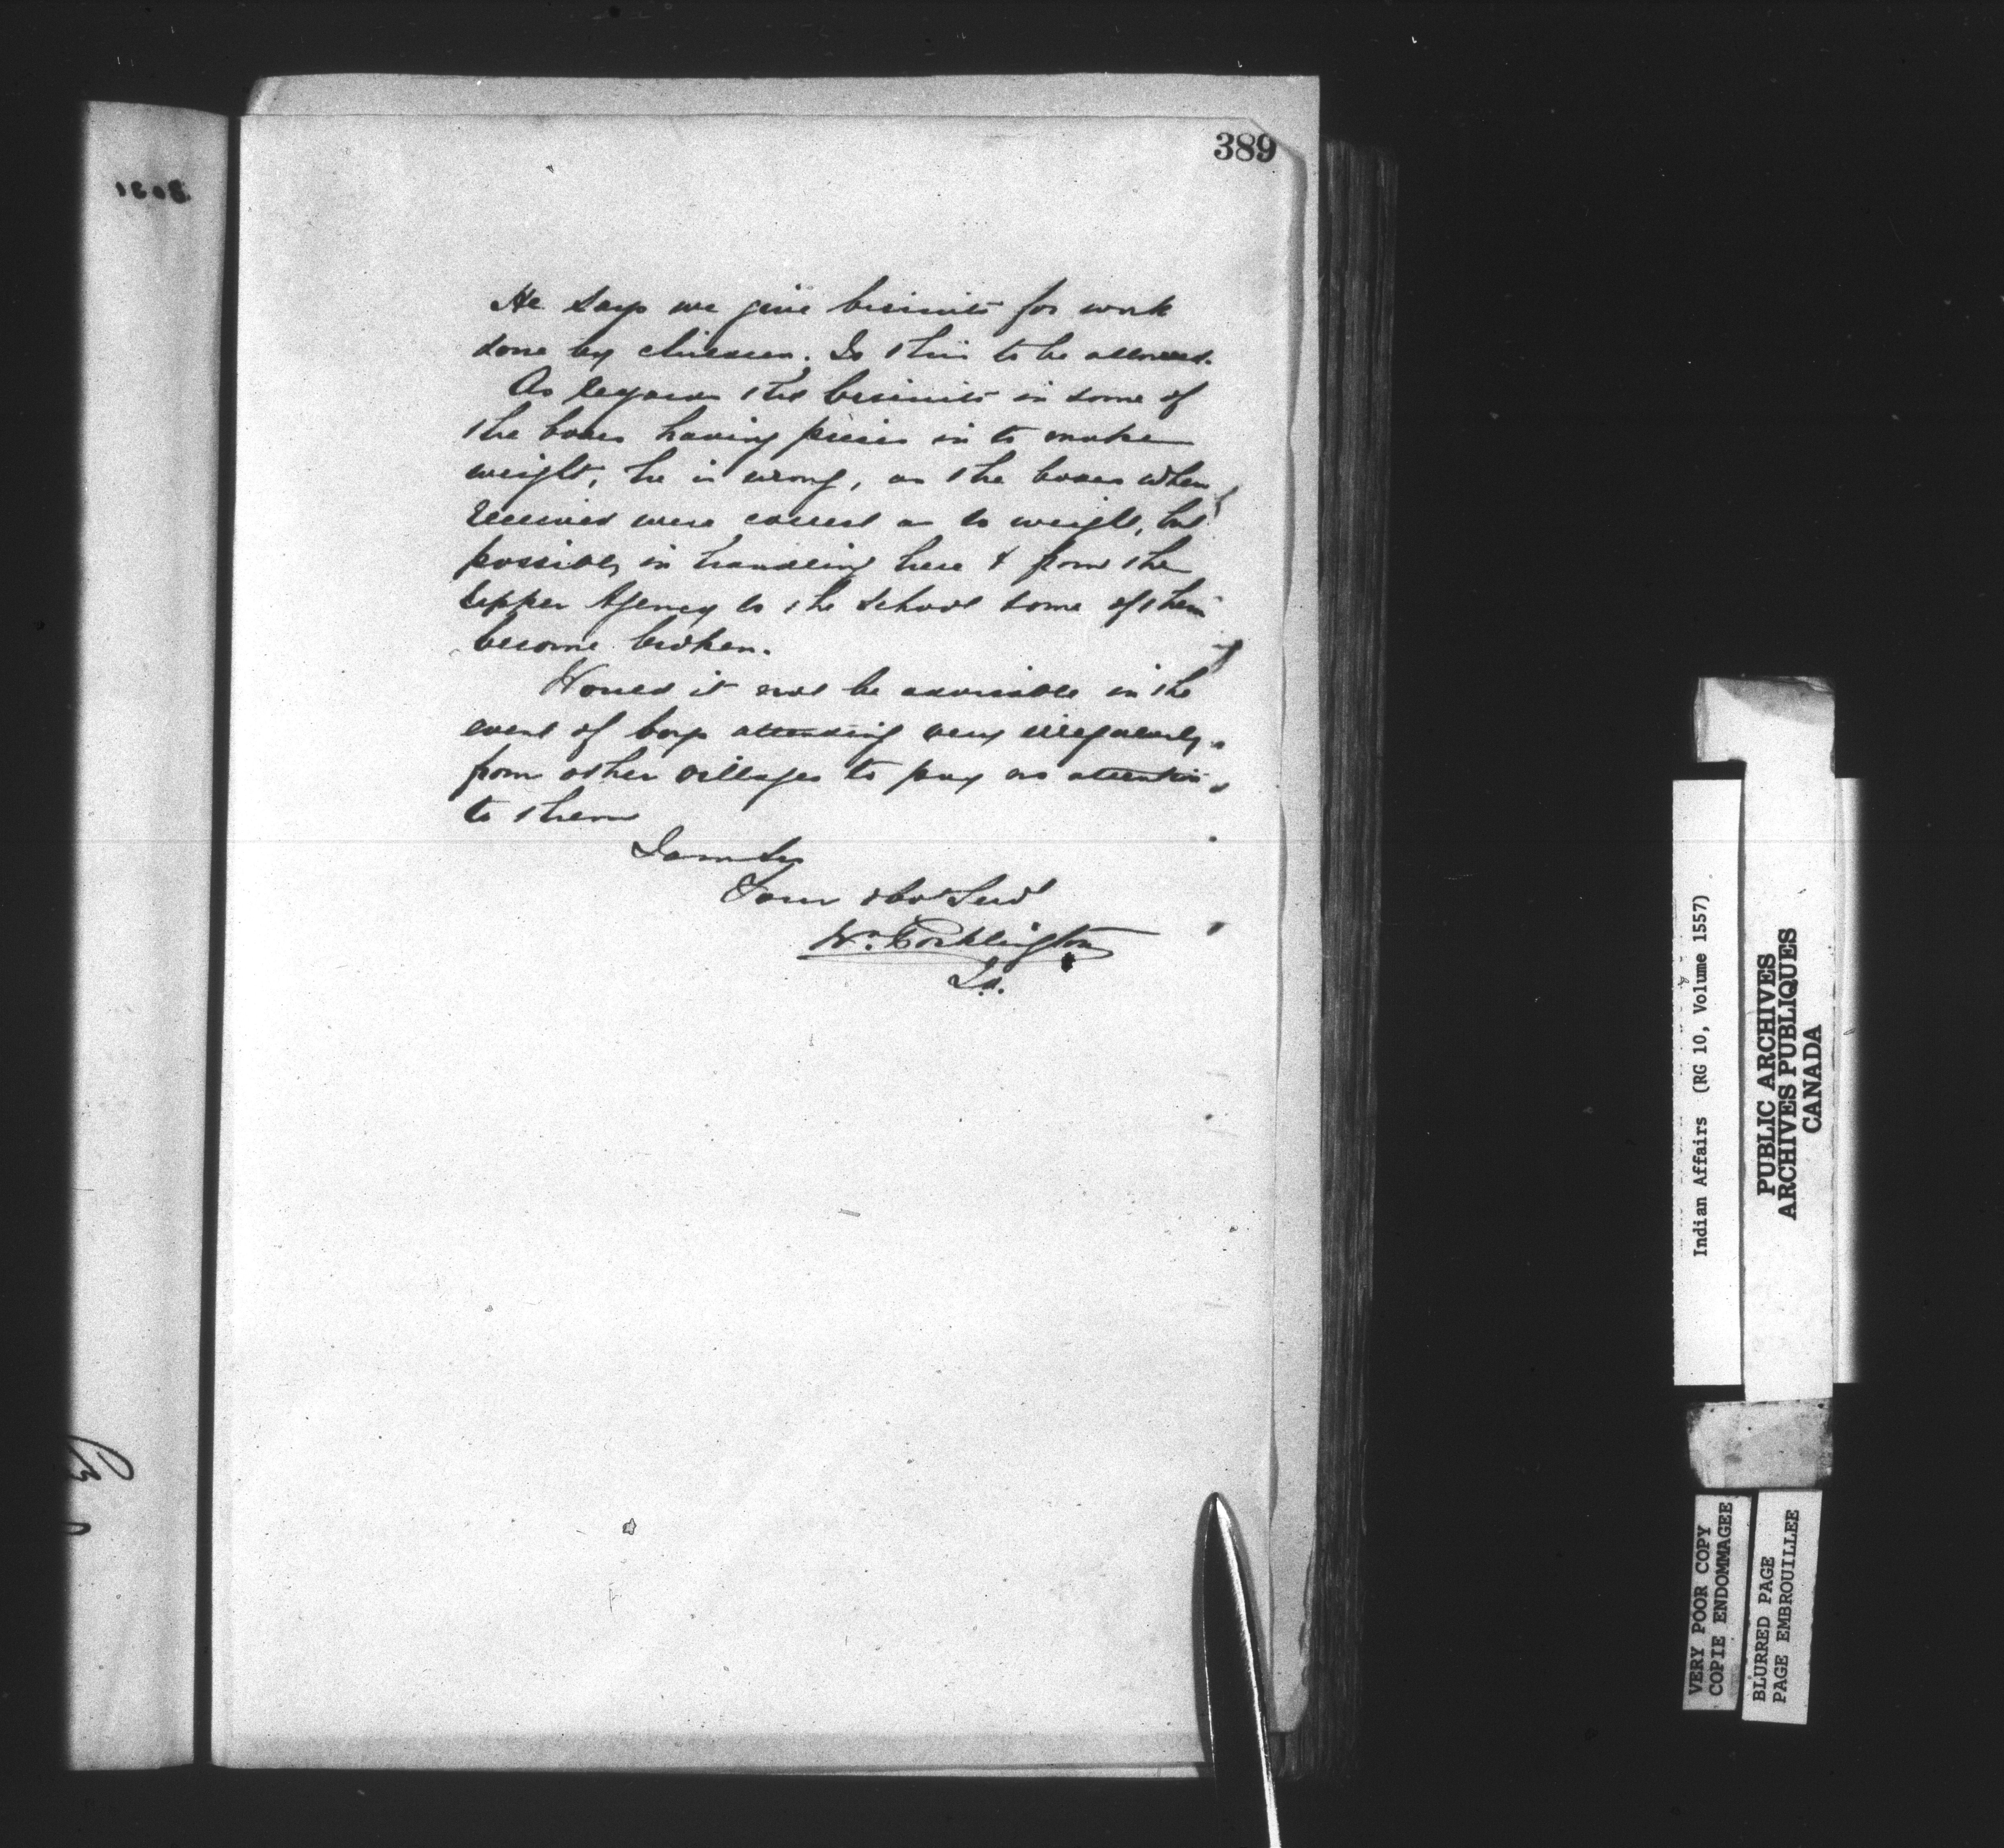 389
He says we give biscuits for work
done by children. Is this to be allowed.
As regards the biscuits in some of
the boxes having pieces in to make
weight, he is wrong, as the boxes when
received were correct as to weight, but
possibly in handling here & from the
Upper Agency to the School some of them
become broken.
Would it not be advisable in the
event of boys attending very irregularly
from other villages to pay no attention
to them
I am Sir
Your Obdt Servt
Wm. Pocklington
I.A.
Indian Affairs (RG 10, Volume 1557)
PUBLIC ARCHIVES
ARCHIVES PUBLIQUES
CANADA
VERY POOR COPY
COPIE ENDOMMAGEE
BLURRED PAGE
PAGE EMBROUILLEE